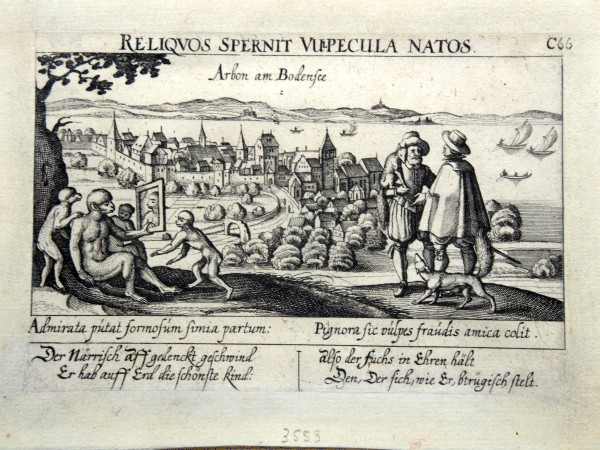 RELIQVOS SPERNIT VULPECULA NATOS.
C66
Arbon am Bodensee
Admirata putat formosum simia partum:
Pignora sic vulpes fraudis amica colit.
Der Närrisch aff gedenckt geschwind
Er hab auff Erd die schönste kind:
also der fuchs in Ehren hält
Den, Der sich, wie Er, btrügisch stelt.
3553